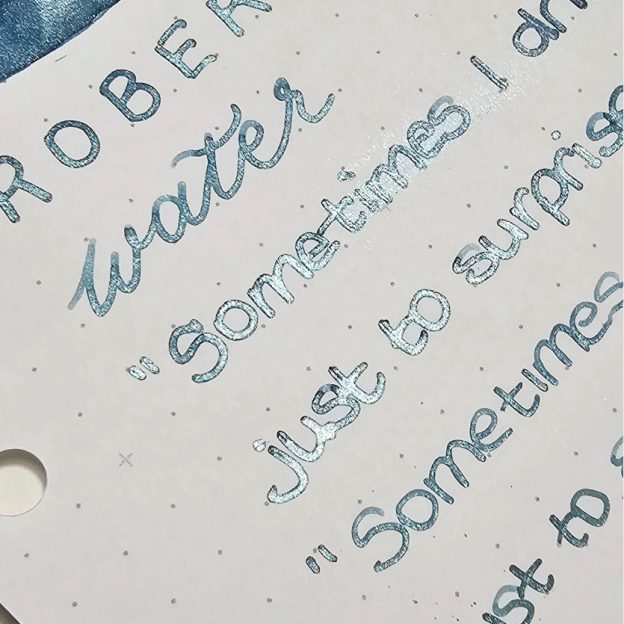 ROBER
water
"Sometimes I drin
just to surprise
"Sometimes
just to s